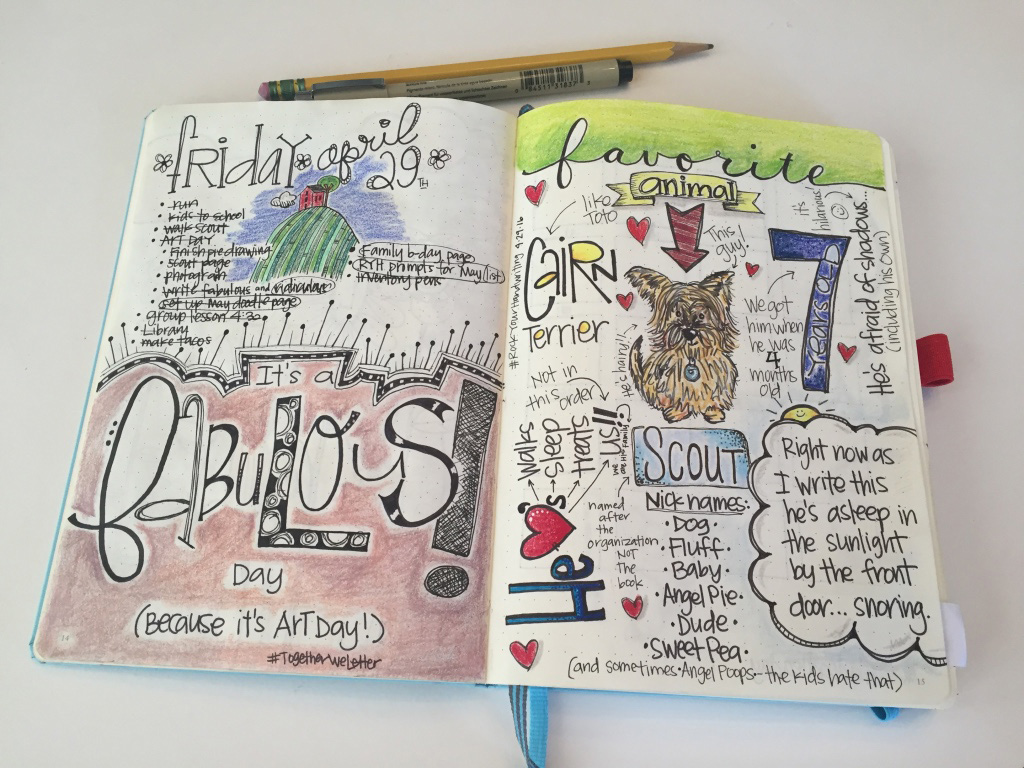 friday april
29TH
• run
• kids to school
• walk scout
• ART DAY
• Finish pie drawing
• scout page
• photograph
• write fabulous and ridiculous
• set up may doodle page
• group lesson 4:30
• Library
• make tacos
• Family b-day page
• RYH prompts for May (list)
• inventory pens
It's a
fabulous!
Day
(Because it's Art Day!)
#TogetherWeLetter
14
favorite
animal
like
Toto
This
guy!
it's
hilarious!
Cairn
Terrier
#RockYourHandwriting 4.29.16
He's hairy!!
We got
him when
he was
4
months
old
7
years old
He's afraid of shadows...
(including his own)
Not in
this order
He ♥'s
walks
sleep
treats
us!!
we are His Family
Scout
named
after
the
organization
NOT
The
book
Nicknames:
• Dog •
• Fluff •
• Baby •
• Angel Pie •
• Dude •
• Sweet Pea •
(and sometimes • Angel Poops - the kids hate that)
Right now as
I write this
he's asleep in
the sunlight
by the front
door... snoring.
15